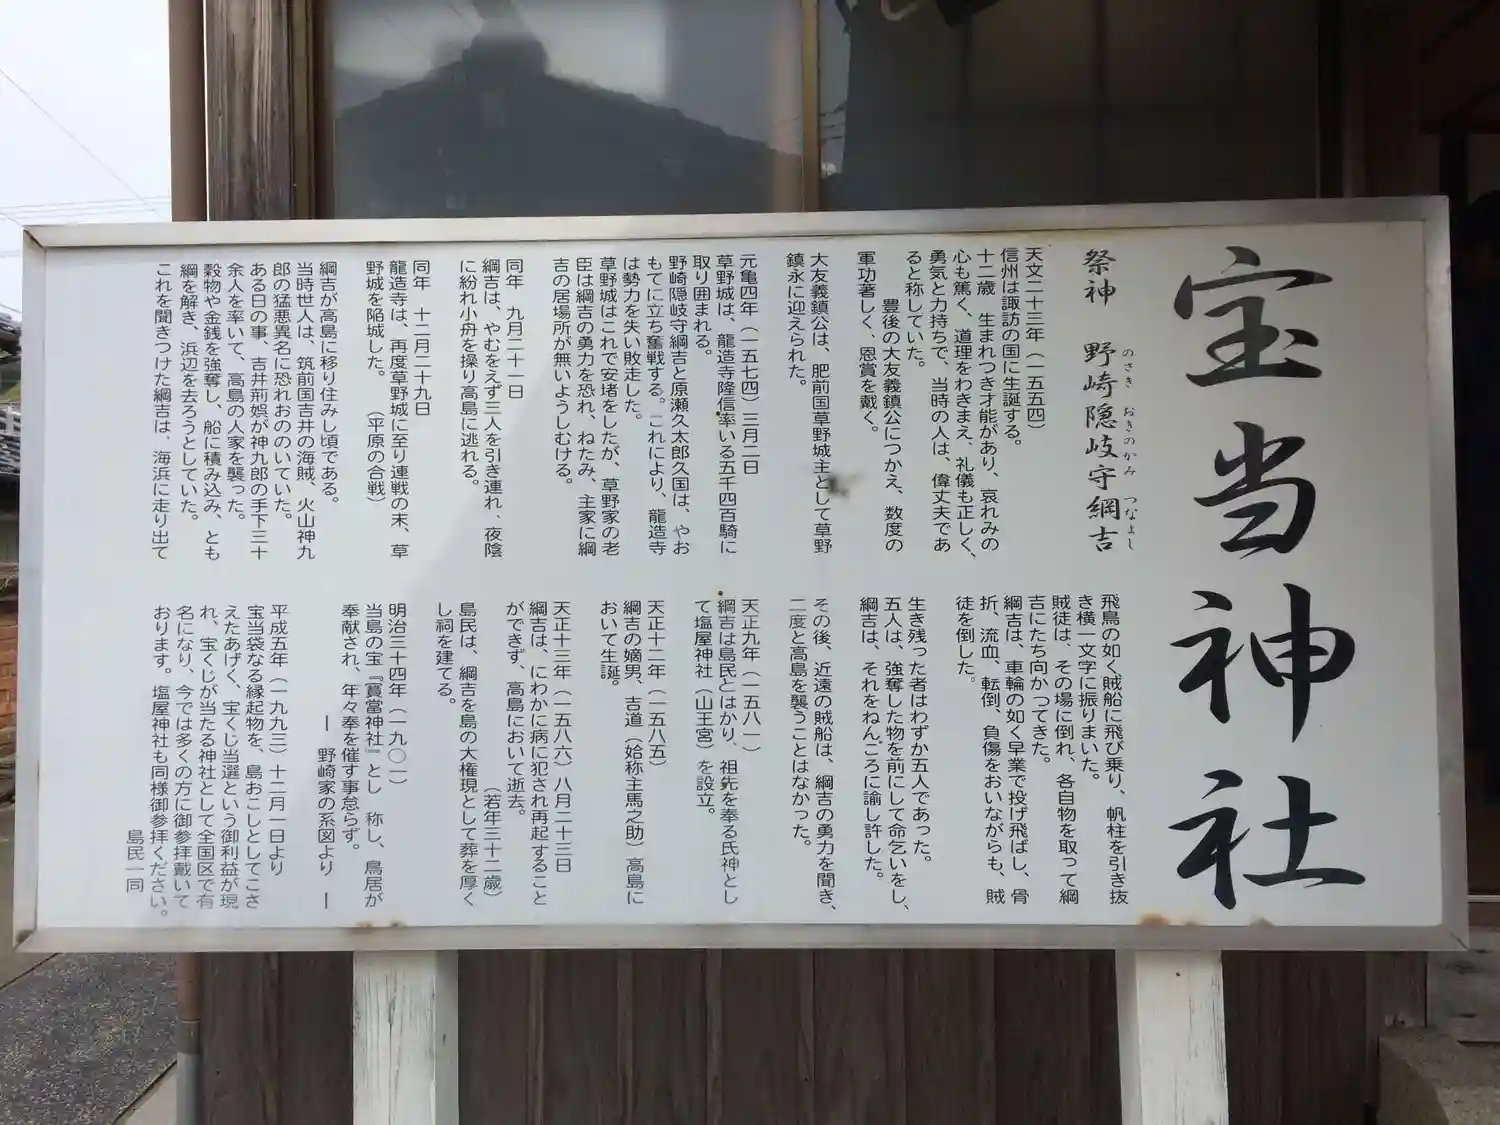 宝当神社
祭神　野崎隠岐守綱吉
のさき　おきのかみ　つなよし
天文二十三年（一五五四）
信州は諏訪の国に生誕する。
十二歳　生まれつき才能があり、哀れみの
心も篤く、道理をわきまえ、礼儀も正しく、
勇気と力持ちで、当時の人は、偉丈夫であ
ると称していた。
豊後の大友義鎮公につかえ、数度の
軍功著しく、恩賞を戴く。
大友義鎮公は、肥前国草野城主として草野
鎮永に迎えられた。
元亀四年（一五七四）三月二日
草野城は、龍造寺隆信率いる五千四百騎に
取り囲まれる。
野崎隠岐守綱吉と原瀬久太郎久国は、やお
もてに立ち奮戦する。これにより、龍造寺
は勢力を失い敗走した。
草野城はこれで安堵をしたが、草野家の老
臣は綱吉の勇力を恐れ、ねたみ、主家に綱
吉の居場所が無いようしむける。
同年　九月二十一日
綱吉は、やむをえず三人を引き連れ、夜陰
に紛れ小舟を操り高島に逃れる。
同年　十二月二十九日
龍造寺は、再度草野城に至り連戦の末、草
野城を陥城した。　（平原の合戦）
綱吉が高島に移り住みし頃である。
当時世人は、筑前国吉井の海賊、火山神九
郎の猛悪異名に恐れおののいていた。
ある日の事、吉井荊娯が神九郎の手下三十
余人を率いて、高島の人家を襲った。
穀物や金銭を強奪し、船に積み込み、とも
綱を解き、浜辺を去ろうとしていた。
これを聞きつけた綱吉は、海浜に走り出て
飛鳥の如く賊船に飛び乗り、帆柱を引き抜
き横一文字に振りまいた。
賊徒は、その場に倒れ、各自物を取って綱
吉にたち向かってきた。
綱吉は、車輪の如く早業で投げ飛ばし、骨
折、流血、転倒、負傷をおいながらも、賊
徒を倒した。
生き残った者はわずか五人であった。
五人は、強奪した物を前にして命乞いをし、
綱吉は、それをねんごろに諭し許した。
その後、近遠の賊船は、綱吉の勇力を聞き、
二度と高島を襲うことはなかった。
天正九年（一五八一）
綱吉は島民とはかり、祖先を奉る氏神とし
て塩屋神社（山王宮）を設立。
天正十二年（一五八五）
綱吉の嫡男、吉道（始称主馬之助）高島に
おいて生誕。
天正十三年（一五八六）八月二十三日
綱吉は、にわかに病に犯され再起すること
ができず、高島において逝去。
（若年三十二歳）
島民は、綱吉を島の大権現として葬を厚く
し祠を建てる。
明治三十四年（一九〇一）
当島の宝『寶當神社』とし　称し、鳥居が
奉献され、年々奉を催す事怠らず。
ー　野崎家の系図より　ー
平成五年（一九九三）十二月一日より
宝当袋なる縁起物を、島おこしとしてこさ
えたあげく、宝くじ当選という御利益が現
れ、宝くじが当たる神社として全国区で有
名になり、今では多くの方に御参拝戴いて
おります。塩屋神社も同様御参拝ください。
島民一同